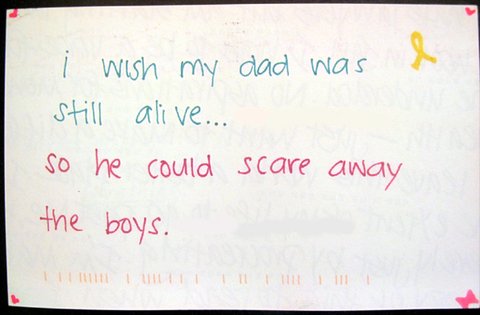 i wish my dad was
still alive...
so he could scare away
the boys.